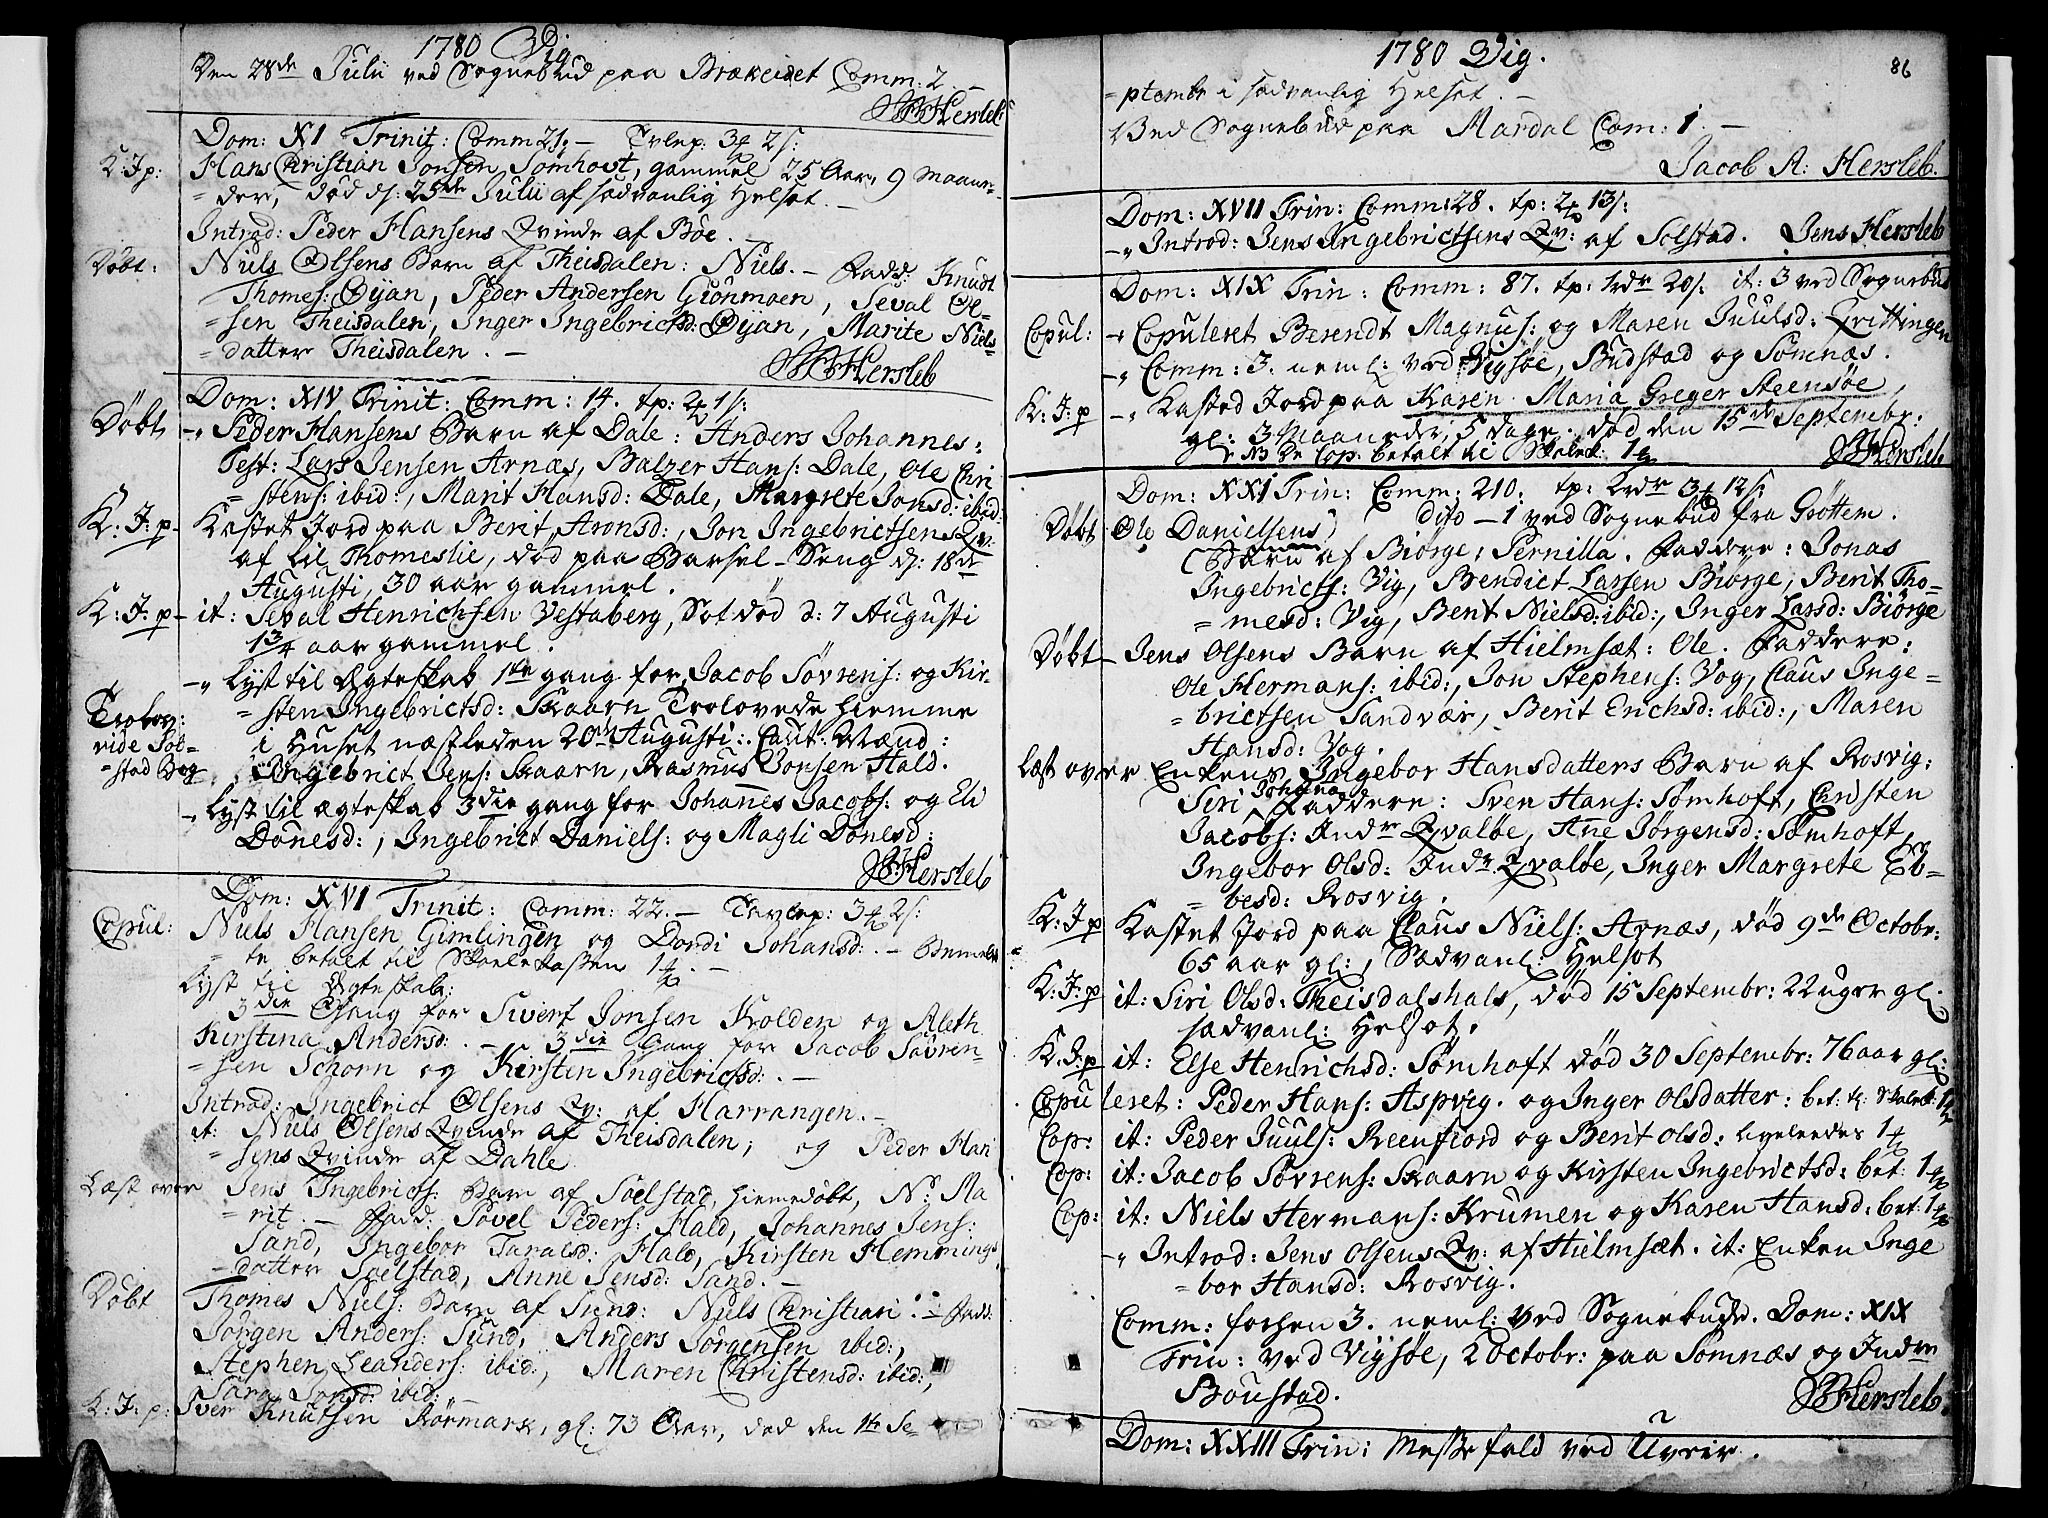 1780 Vig
Den 28de Julii ved Sognebud paa Brækeidet Comm: 2. –
Hersleb
Dom: XI Trinit: Comm 21: –
K: J p: Hans Christian Jonsen Sømhovt, gammel 25 Aar, 9 Maane-
= der, død d: 25de Julii af sædvanlig Helsot. –
Introd: Peder Hansens Qvinde af Bøe.
Døbt: Niels Olsens Barn af Theisdalen: Niels. – Fadd. Knudt
Thomes: Øyan, Peder Andersen Grønmoen, Seval Ol-
= sen Theisdalen, Inger Ingebrictsd: Øyan, Marite Niels-
= datter Theisdalen. –
Hersleb
Dom: XIV Trinit: Comm: 14. tp:
Døbt –„ Peder Hansens Barn af Dale: Anders Johannes:
Test: Lars Jensen Arnæs, Balzer Hans: Dale, Ole Chri
= stens: ibid:, Marit Hansd: Dale, Margrete Jonsd: ibid:
K: J: p – Kastet Jord paa Berit Aronsd:, Jon Ingebrictsens Qv:
af Lil Thomeslie, død paa Barsel-Seng d: 18de
Augusti, 30 aar gammel.
K: J: p – it: Seval Henrichsen Vestaberg, Sot død d: 7 Augusti
1 3/4 aar gammel.
–„ Lyst til Ægteskab 1ste gang for Jacob Søvrens: og Kir-
= sten Ingebrictsd: Skaarn Trolovede hiemme
Trolov: i Huset næstleden 20de Augusti: Caut: Mænd:
vide Sol-
= stad Bog Ingebrict Jens: Skaarn, Rasmus Jonsen Hald.
–„ Lyst til ægteskab 3die gang for Johannes Jacobs: og Eli
Dønesd:, Ingebrict Daniels: og Magli Dønesd:
Hersleb
Dom: XVI Trinit: Comm: 22. –
Copul: Niels Hansen Gimlingen og Dordi Johansd: –
= te betalt til Skolekassen
Lyst til Ægteskab:
3die Gang for Sivert Jonsen Kolden og Aleth
Kirstina Andersd: – 3die Gang for Jacob Søvren-
= sen Schorn og Kirsten Ingebrictsd: –
Introd: Ingebrict Olsens Qv: af Harrangen. –
it: Niels Olsens Qvinde af Theisdalen; og Peder Han
= sens Qvinde af Dahle
Læst over Jens Ingebricts: Barn af Soelstad, hiemedøbt, N: Ma
= rit. – Fadd: Povel Peders: Hald, Johannes Jens:
Sand, Ingebor Taralsd: Hald, Kirsten Hemmings
= datter Soelstad, Anne Jensd: Sand. –
Døbt Thomes Niels: Barn af Sund: Niels Christian: – Fadd:
Jørgen Anders: Sund, Anders Jørgensen ibid:,
Stephen Leanders: ibid:, Maren Christensd: ibid:,
Sara Jonsd: ibid:
K: J: p: Iver Knutsen Rørmark, gl: 73 Aar, død den 1te Se-
1780 Vig.
86
= ptembr i sædvanlig Helsot. –
Ved Sognebud paa Mardal Com: 1. –
Jacob A: Hersleb.
Dom: XVII Trin: Comm: 28. tp:
–„ Introd: Jens Ingebrictsens Qv: af Solstad. Jens Hersleb
Dom: XIX Trin: Comm: 87. tp: 1rdr 20s: it: 3 ved Sognebud
Copul: –„ Copuleret Berendt Magnus: og Maren Juulsd: Grittingen
–„ Comm: 3. neml: ved Vigsøe, Budstad og Sømnæs.
K: J: p –„ Kasted Jord paa Karen Maria Greger Steensøe,
gl: 3 Maaneder, 5 dage. død den 15de Septembr:
NB De Cop: betalt til Skolek:
Hersleb
Dom: XXI Trin: Comm: 210: tp:
dito – 1 ved Sognebud fra Grøttem.
Døbt Ole Danielsens
Barn af Biørge: Pernilla. Faddere: Jonas
Ingebricts: Vig, Bendict Larsen Biørge, Berit Tho-
= mesd: Vig, Berit Nielsd: ibid:, Inger Larsd: Biørge
Døbt – Jens Olsens Barn af Hielmsæt: Ole. Faddere:
Ole Hermans: ibid:, Jon Stephens: Vog, Claus Inge-
= brictsen Sandvær, Berit Erichsd: ibid:, Maren
Hansd: Vog.
Læst over Enkens Ingebor Hansdatters Barn af Rosvig:
Siri Johanna Faddere: Sven Hans: Sømhoft, Christen
Jacobs: Indre Qvaløe, Ane Jørgensd: Sømhoft,
Ingebor Olsd: Indr Qvaløe, Inger Margrete Eb-
= besd: Rosvig.
K: J: p Kastet Jord paa Claus Niels: Arnæs, død 9de Octobr:
65 aar gl:, Sædvanl: Helsot
K: J: p it: Siri Olsd: Theisdalshals, død 15 Septembr: 22 uger gl.
sædvanl: Helsot.
K: J: p it: Else Henrichsd: Sømhoft død 30 Septembr: 76 aar gl:
Copuleret: Peder Hans: Aspvig. og Inger Olsdatter: bet: til Skolek:
Cop: it: Peder Juuls: Reenfiord og Berit Olsd: ligeledes
Cop: it: Jacob Søvrens: Skaarn og Kirsten Ingebrictsd: bet:
Cop: it: Niels Hermans: Krumen og Karen Hansd: bet:
–„ Introd: Jens Olsens Qv: af Hielmsæt. it: Enken Inge
= bor Hansd: Rosvig.
Comm: forhen 3. neml: ved Sognebude. Dom: XIX
Trin: ved Vigsøe, 2 Octobr: paa Sømnæs og Indre
Boustad.
Hersleb
Dom: XXIII Trin: Messefald ved Uveir.